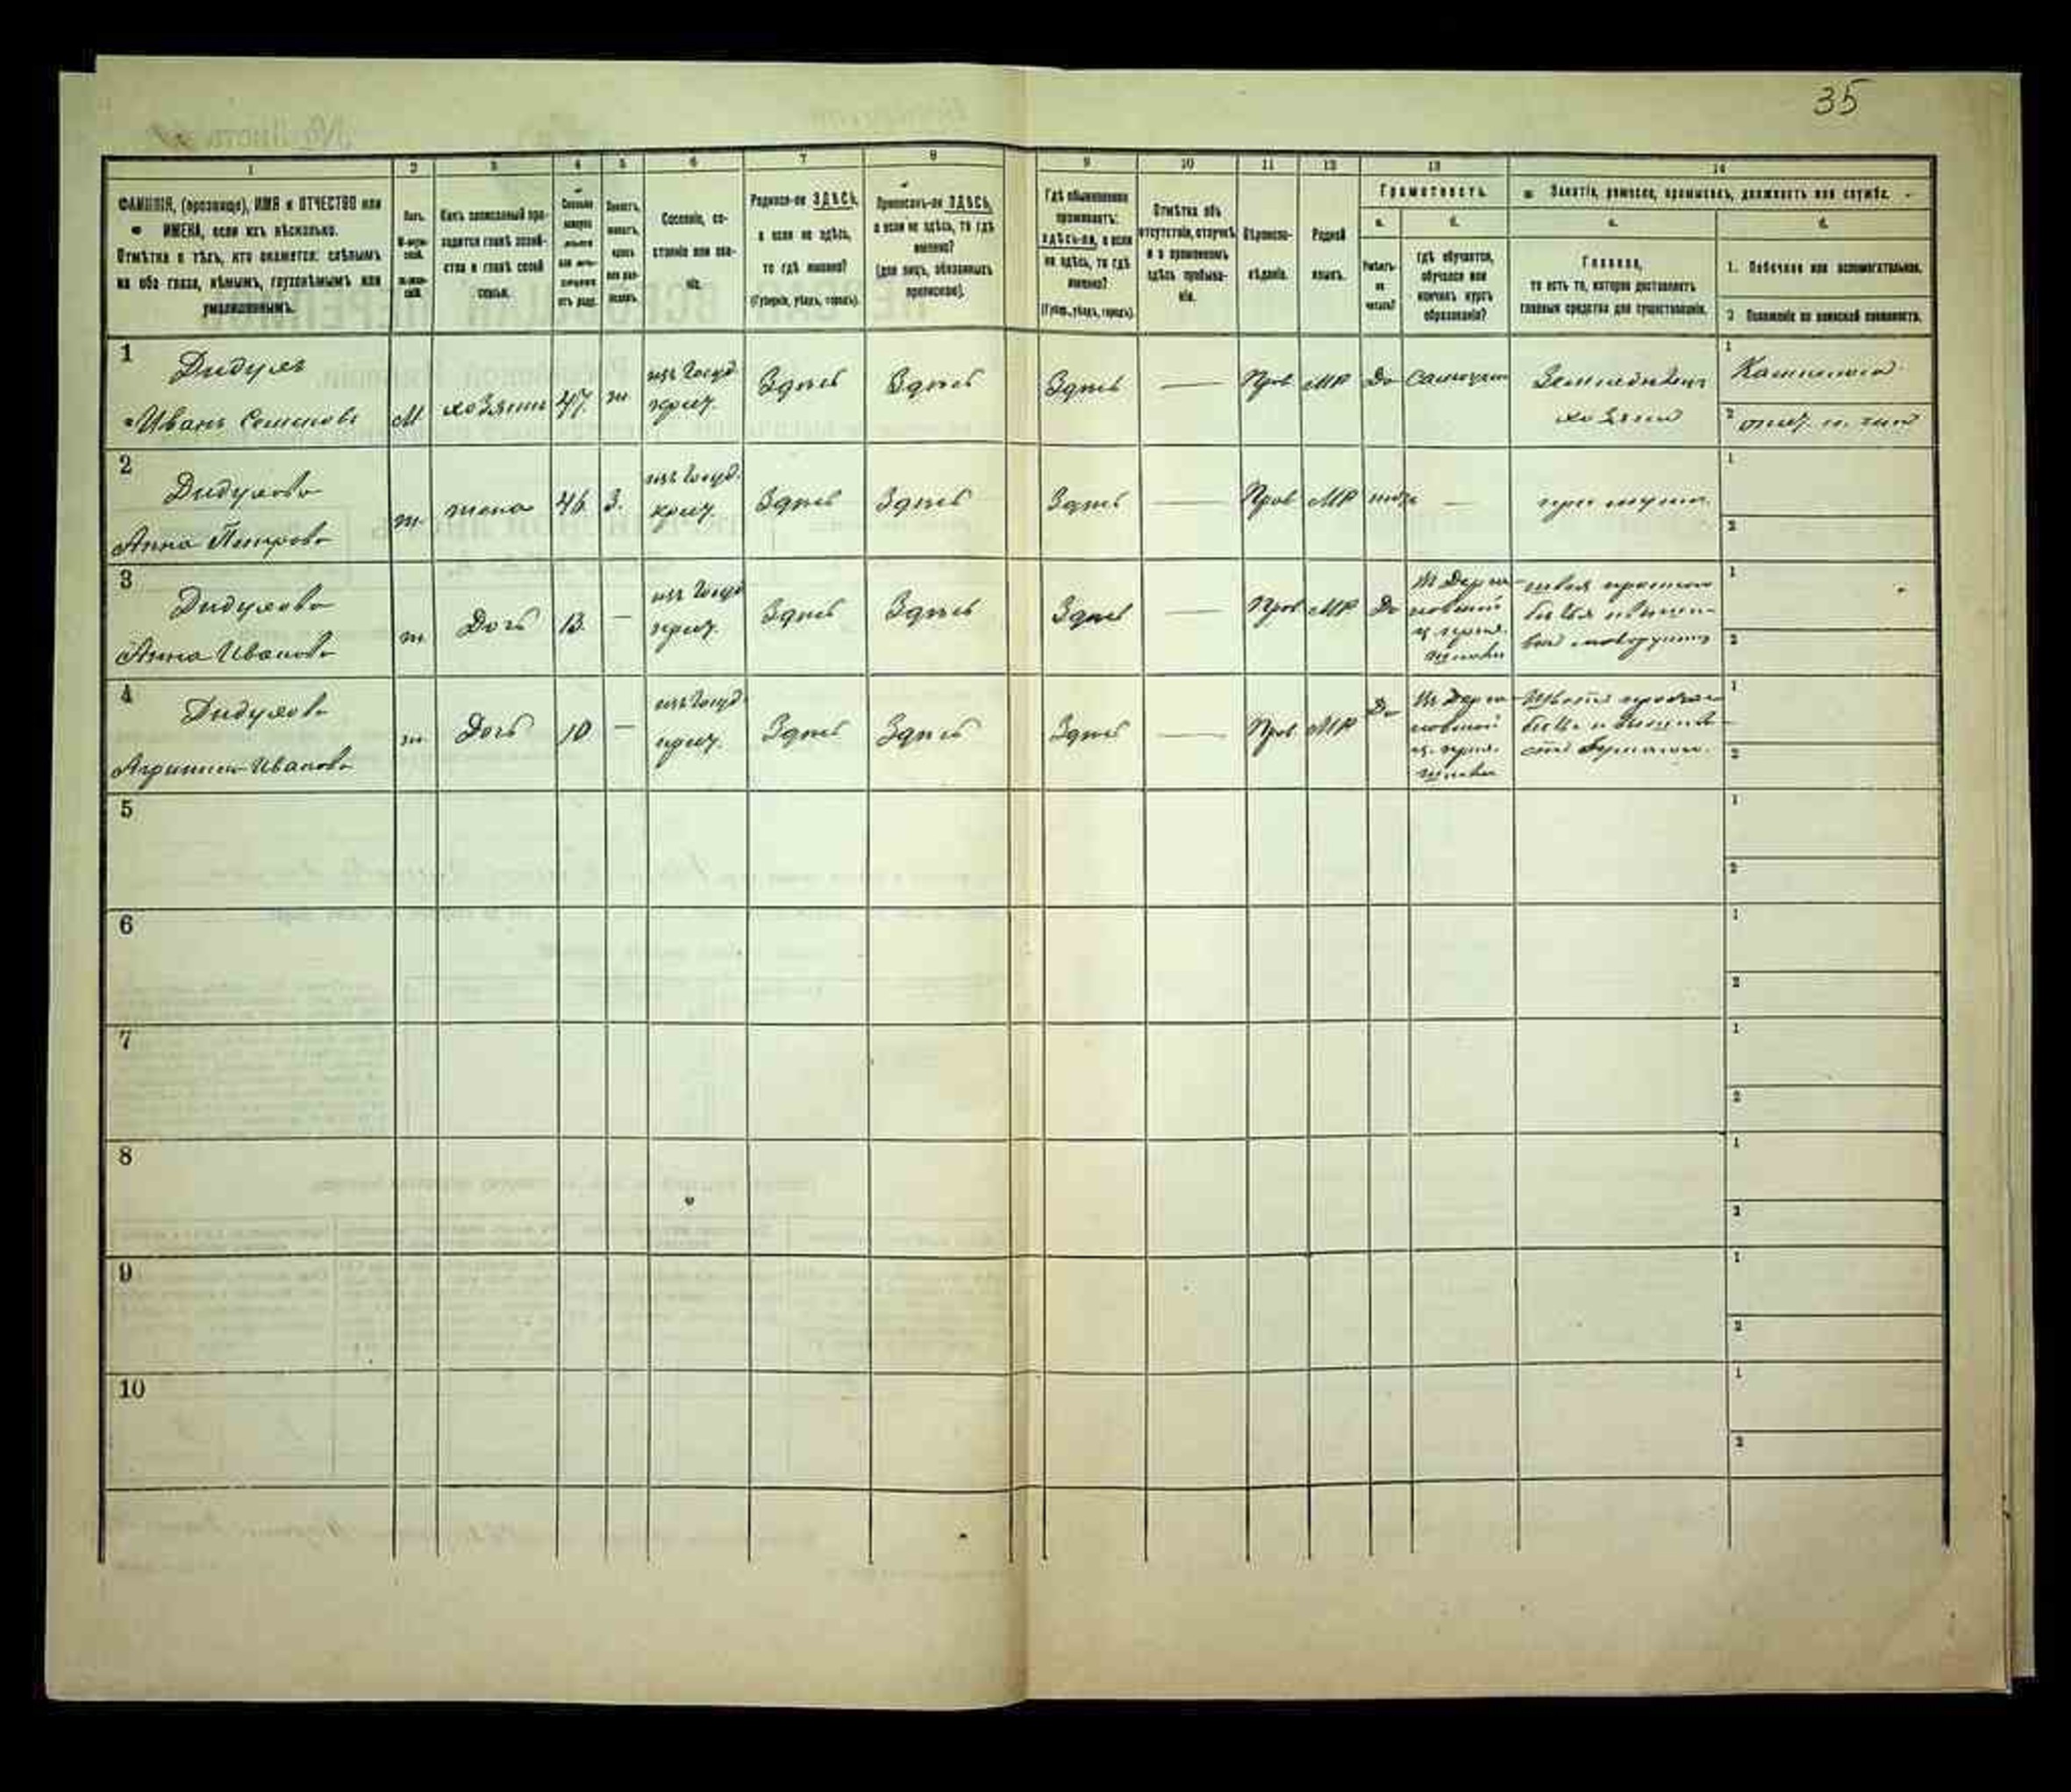 35
1
2
3
4
5
6
7
8
9
10
11
12
13
14
ФАМИЛІЯ, (прозвище), ИМЯ и ОТЧЕСТВО или
ИМЕНА, если ихъ нѣсколько.
Отмѣтка о тѣхъ, кто окажется: слѣпымъ
на оба глаза, нѣмымъ, глухонѣмымъ или
умалишеннымъ.
Полъ.
Какъ записанный при-
ходится главѣ хозяй-
ства и главѣ своей
семьи.
Сословіе, со-
стояніе или зва-
ніе.
Родился-ли ЗДѢСЬ,
а если не здѣсь,
то гдѣ именно?
(Губернія, уѣздъ, городъ).
Приписанъ-ли ЗДѢСЬ,
а если не здѣсь, то гдѣ
именно?
(для лицъ, обязанныхъ
припискою).
Гдѣ обыкновенно
проживаетъ:
здѣсь-ли, а если
не здѣсь, то гдѣ
именно?
(Губер., уѣздъ, городъ).
Отмѣтка объ
отсутствіи, отлучкѣ
и о временномъ
здѣсь пребыва-
ніи.
Вѣроиспо-
вѣданіе.
Родной
языкъ.
Грамотность.
а.
б.
Умѣетъ-
ли
читать?
гдѣ обучается,
обучался или
кончилъ курсъ
образованія?
Занятіе, ремесло, промыселъ, должность или служба.
а.
б.
Главное,
то есть то, которое доставляетъ
главныя средства для существованія.
1. Побочное или вспомогательное.
2 Положеніе по воинской повинности.
1
Дидуля
Иванъ Семеновъ
М
хозяинъ
47
ж
изъ Госуд.
крест.
Здѣсь
Здѣсь
Здѣсь
—
Прав
МР
Да
самоучки
Земледѣлецъ
хозяинъ
1
2
2
Дидулева
Анна Петрова
ж
жена
46
З.
изъ Госуд.
крест.
Здѣсь
Здѣсь
Здѣсь
—
Прав
МР
—
при мужѣ
1
2
3
Дидулева
Анна Иванова
ж
Дочь
13
—
изъ Госуд
крест.
Здѣсь
Здѣсь
Здѣсь
—
Прав
МР
Да
1
2
4
Дидулева
Агрипина Иванова
ж
Дочь
10
—
изъ Госуд.
крест.
Здѣсь
Здѣсь
Здѣсь
—
Прав
МР
Да
1
2
5
1
2
6
1
2
7
1
2
8
1
2
9
1
2
10
1
2